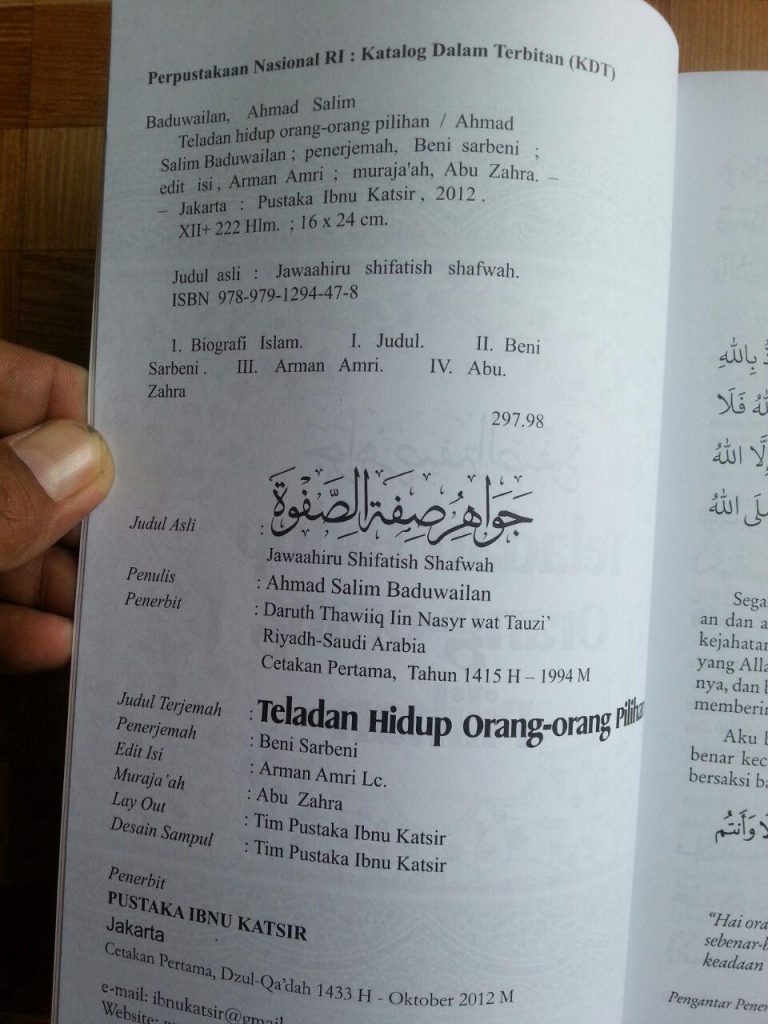 Perpustakaan Nasional RI : Katalog Dalam Terbitan (KDT)
Baduwailan, Ahmad Salim
Teladan hidup orang-orang pilihan / Ahmad
Salim Baduwailan ; penerjemah, Beni sarbeni ;
edit isi, Arman Amri ; muraja'ah, Abu Zahra. –
– Jakarta : Pustaka Ibnu Katsir, 2012 .
XII+ 222 Hlm. ; 16 x 24 cm.
Judul asli : Jawaahiru shifatish shafwah.
ISBN 978-979-1294-47-8
1. Biografi Islam. I. Judul. II. Beni
Sarbeni . III. Arman Amri. IV. Abu.
Zahra
297.98
Judul Asli : جَوَاهِرُ صِفَةِ الصَّفْوَةِ
Jawaahiru Shifatish Shafwah
Penulis : Ahmad Salim Baduwailan
Penerbit : Daruth Thawiiq Iin Nasyr wat Tauzi'
Riyadh-Saudi Arabia
Cetakan Pertama, Tahun 1415 H – 1994 M
Judul Terjemah : Teladan Hidup Orang-orang Pilihan
Penerjemah : Beni Sarbeni
Edit Isi : Arman Amri Lc.
Muraja'ah : Abu Zahra
Lay Out : Tim Pustaka Ibnu Katsir
Desain Sampul : Tim Pustaka Ibnu Katsir
Penerbit
PUSTAKA IBNU KATSIR
Jakarta
Cetakan Pertama, Dzul-Qa'dah 1433 H - Oktober 2012 M
e-mail: ibnukatsir@gmai
Website:
بِاللهِ
اللهُ فَلَا
إِلَّا اللهُ
صَلَى اللهُ
Sega
an dan a
kejahatan
yang Alla
nya, dan b
memberin
Aku b
benar kec
bersaksi ba
وَأَنتُم
“Hai ora
sebenar-b
keadaan
Pengantar Pener